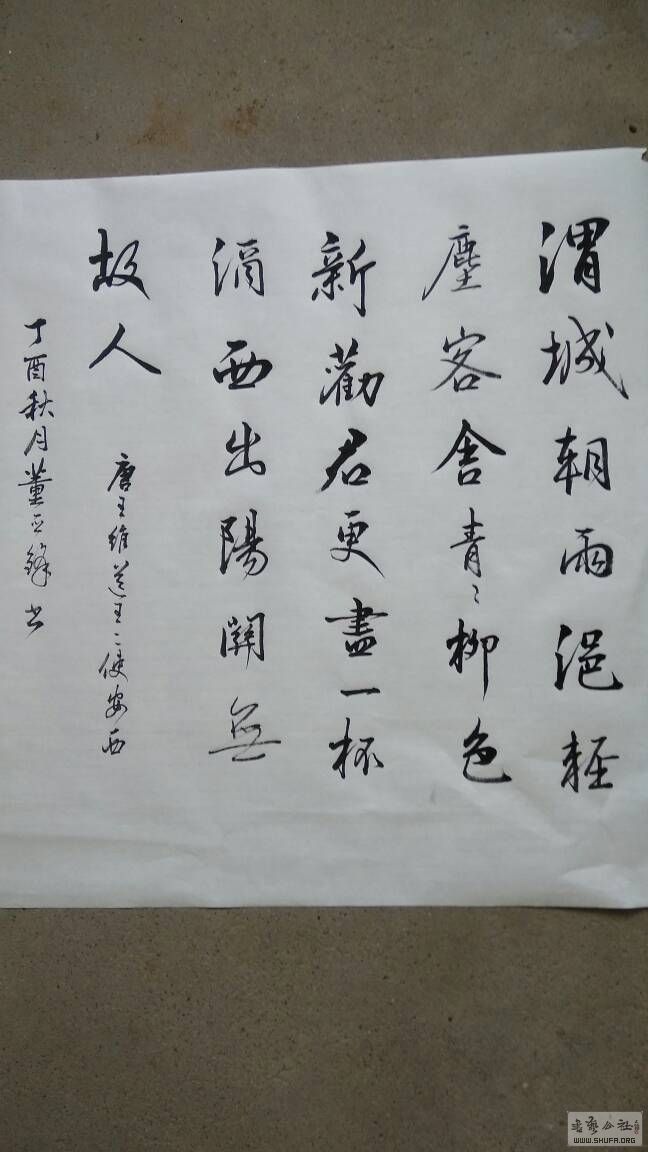 渭城朝雨浥輕
塵客舍青〻柳色
新勸君更盡一杯
酒西出陽關無
故人
唐王維送王二使安西
丁酉秋月董正鋒书
書藝公社
WWW.SHUFA.ORG